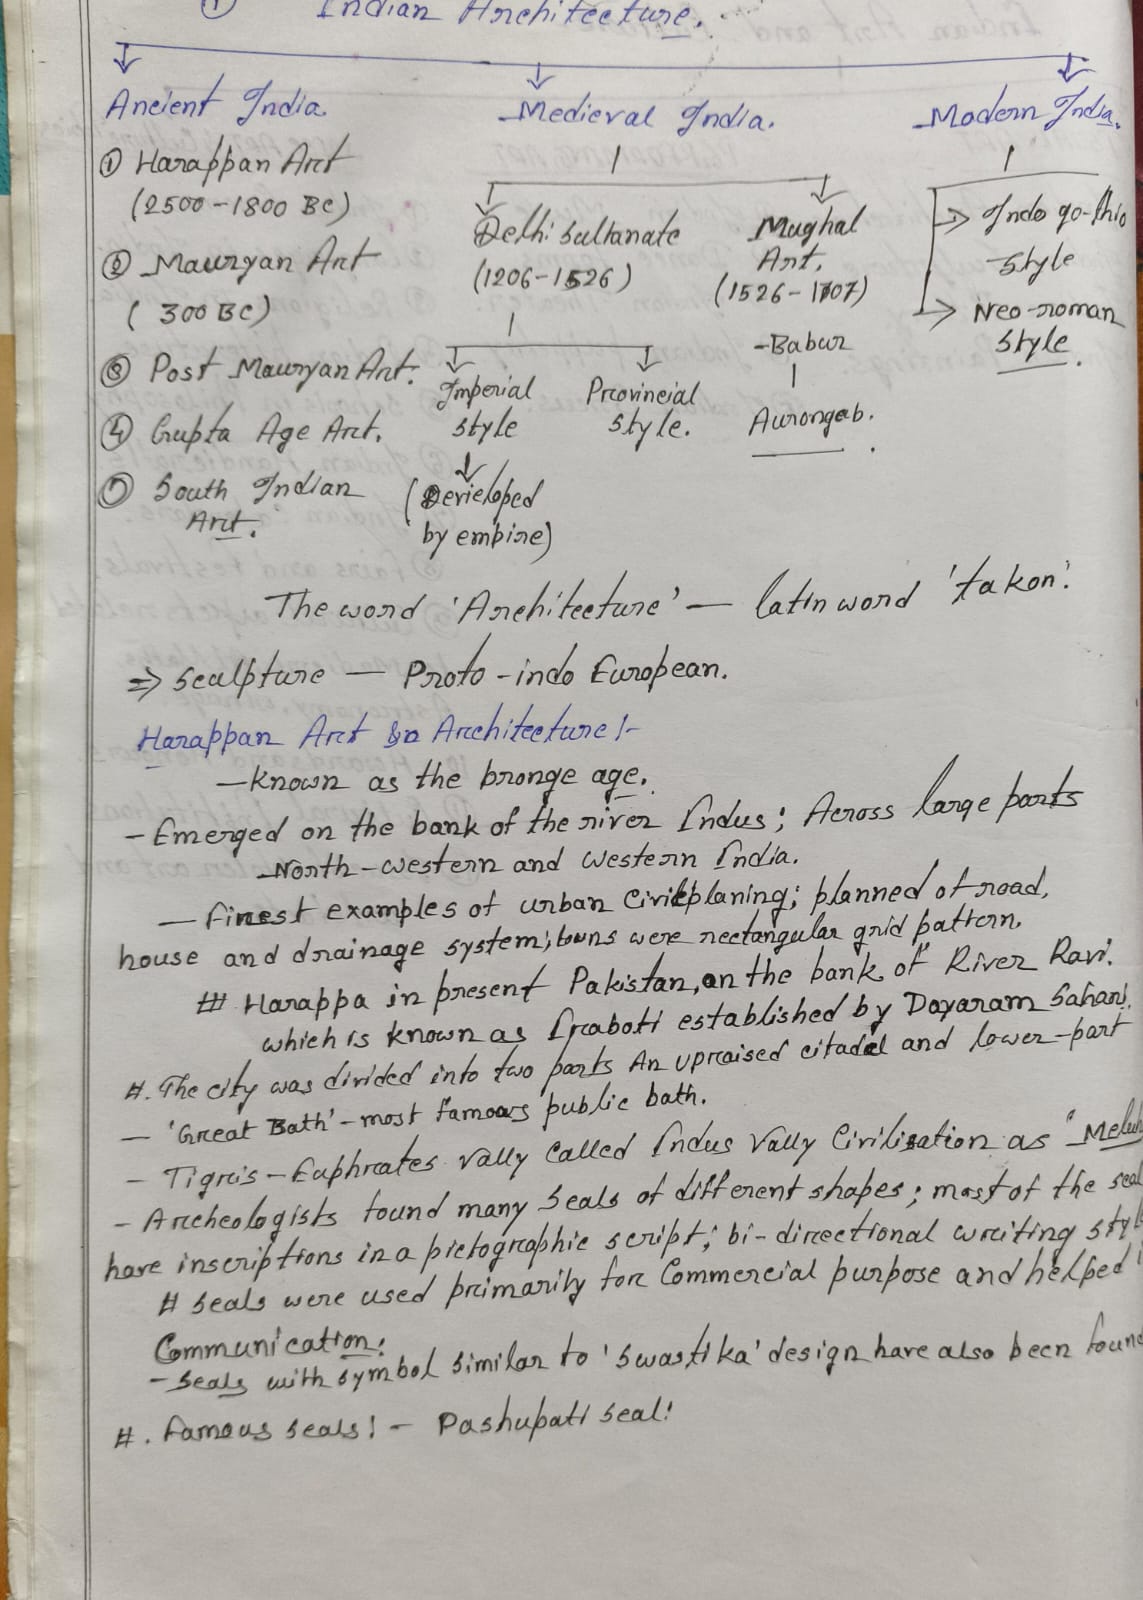 ① Indian Architecture.
Ancient India. Medieval India. Modern India.
① Harappan Art
(2500-1800 BC)
② Mauryan Art
( 300 BC)
③ Post Mauryan Art.
④ Gupta Age Art.
⑤ South Indian
Art.
Delhi sultanate
(1206-1526)
Imperial
style
(Developed
by empire)
Provincial
style.
Mughal
Art.
(1526-1707)
-Babur
Aurongab.
Indo go-thic
style
Neo-roman
style.
The word 'Architecture' — latin word 'takon'.
⇒ sculpture — Proto-indo European.
Harappan Art & Architecture:-
-known as the bronge age.
- Emerged on the bank of the river Indus; Across large parts
North-western and western India.
— finest examples of urban civil planing; planned of road,
house and drainage system; towns were rectangular grid pattern.
# Harappa in present Pakistan, on the bank of River Ravi.
which is known as Iraboti established by Dayaram Sahani.
#. The city was divided into two parts An upraised citadel and lower-part
— 'Great Bath' - most famous public bath.
- Tigris-Euphrates vally called Indus Vally Civilisation as
- Archeologists found many seals of different shapes; most of the seal
have inscriptions in a pictographic script; bi-directional writing
# seals were used primarily for Commercial purpose and helped
Communication:
-seals with symbol similar to 'swastika' design have also been found
#. Famous seals:- Pashupati seal: